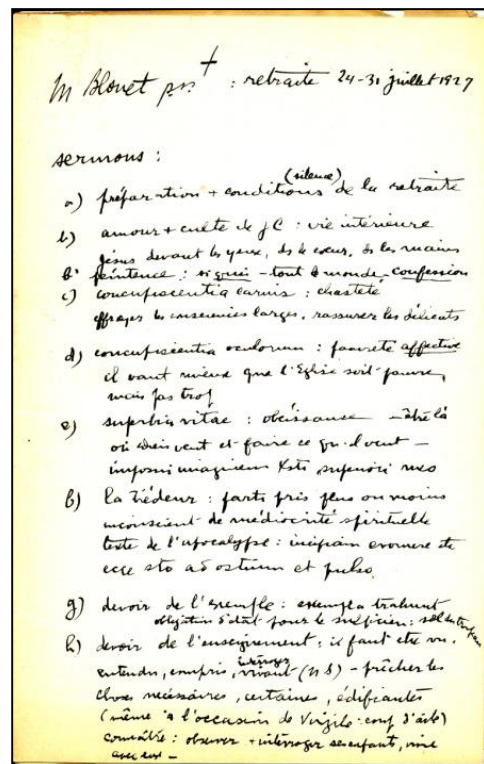 M Blouet pss + : retraite 24-31 juillet 1927
sermons :
a) préparation + conditions (silence) de la retraite
b) amour + culte de JC : vie intérieure
Jésus devant les yeux, ds le coeur, ds les mains
b' pénitence : si quis - tout le monde - confession
c) concupiscentia carnis : chasteté
effrayer les consciences larges, rassurer les délicats
d) concupiscentia oculorum : pauvreté affective
il vaut mieux que l'Eglise soit pauvre,
mais pas trop
e) superbia vitae : obéissance - être là
où Dieu veut et faire ce qu'il veut -
imaginem Xsti superiori meo
f) la tiédeur : parti pris plus ou moins
inconscient de médiocrité spirituelle
texte de l'apocalypse : incipiam evomere te
ecce sto ad ostium et pulso
g) devoir de l'exemple : exempla trahunt
obligation d'état pour le sulpicien :
h) devoir de l'enseignement : il faut etre vu,
entendu, compris, interroger, vivant (NS) - prêcher les
choses nécessaires, certaines, édifiantes
(même à l'occasion de Virgile : conf d'
connaître : observer + interroger ses enfants, vivre
avec eux -